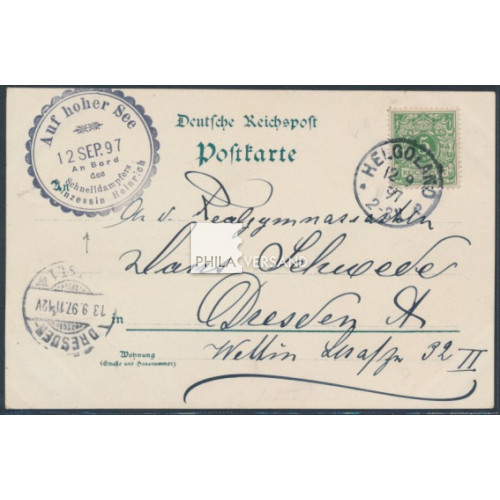 Auf hoher See
12 SEP. 97
An Bord
des
Schnelldampfers
Prinzessin Heinrich
Deutsche Reichspost
Postkarte
5
* HELGOLAND
12 9
97
2-3N
An
d. v. Realgymnasiasten
PHILA VERSAND
Hans Schwede
13.9.97.11-12V
DRESDEN
in
Dresden A
Wettin Straße 32 II
Wohnung
(Straße und Hausnummer)